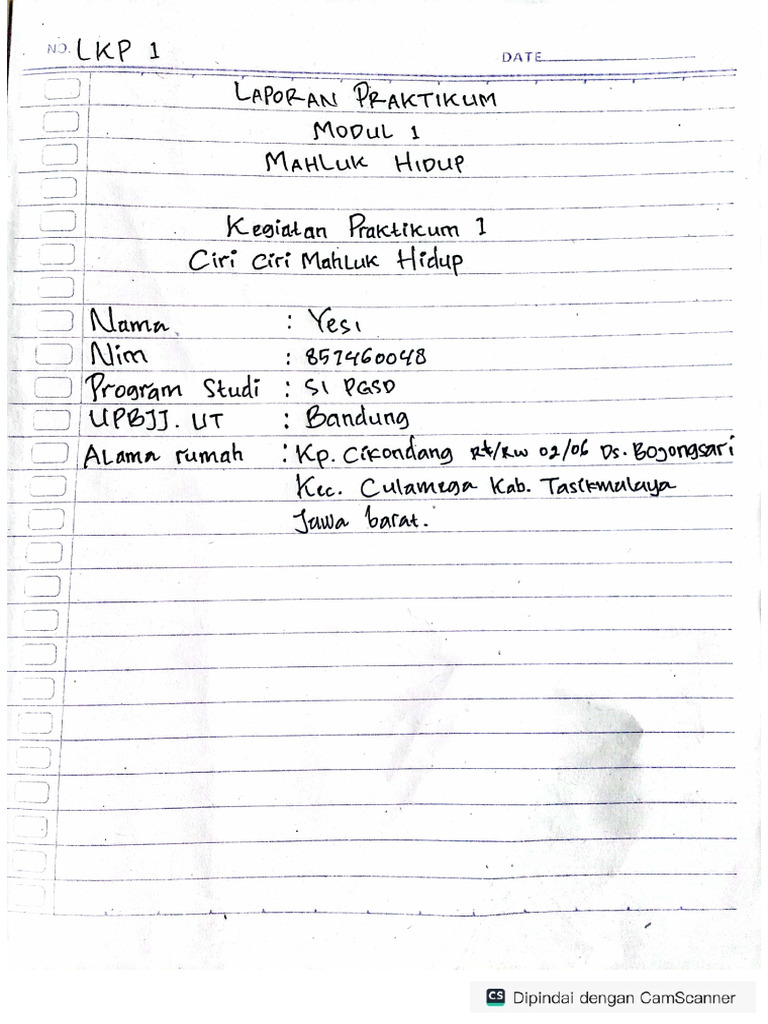 NO. LKP 1
DATE
LAPORAN PRAKTIKUM
MODUL 1
MAHLUK HIDUP
Kegiatan Praktikum 1
Ciri Ciri Mahluk Hidup
Nama : Yesi
Nim : 857460048
Program Studi : S1 PGSD
UPBJJ. UT : Bandung
Alama rumah : Kp. Cikondang Rt/Rw 02/06 Ds. Bojongsari
Kec. Culamega Kab. Tasikmalaya
Jawa barat.
CS Dipindai dengan CamScanner